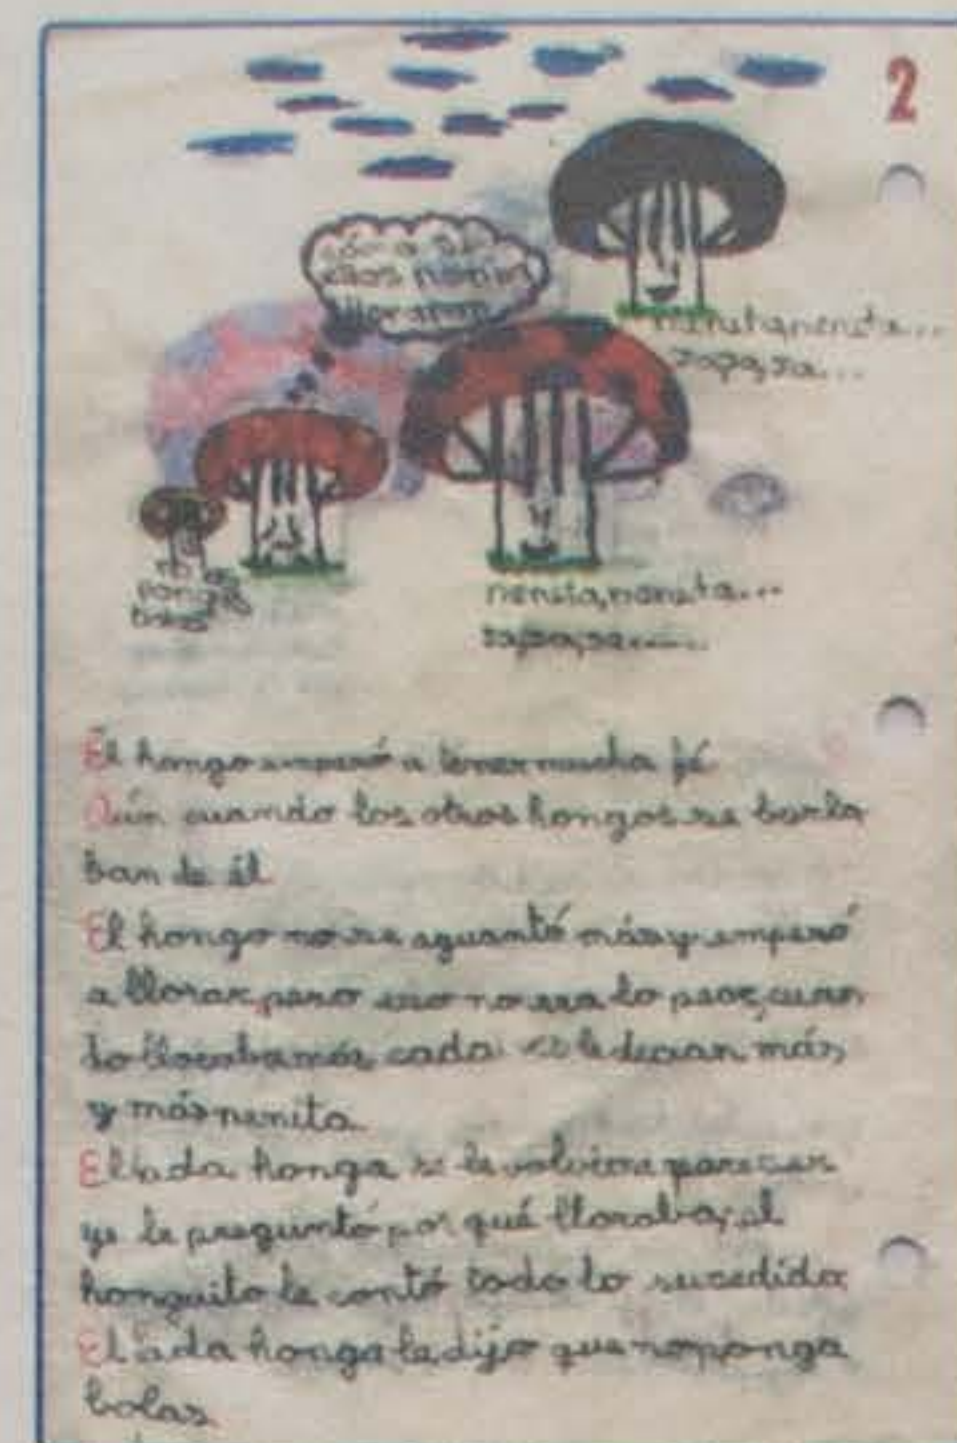 2
ellos nenita
nenita, nenita...
sapa, sa...
no les
pongas
bolas
nenita, nenita...
sapa, sa......
El hongo empezó a tener mucha fé
Aún cuando los otros hongos se burla
ban de él
El hongo no se aguantó más y empezó
a llorar, pero eso no era lo peor, cuan
do lloraba más, cada le decian más,
y más nenita
El ada honga se le volvio a parecer
ye le preguntó por qué lloraba, el
honguito le contó todo lo sucedido
El ada honga le dijo que no ponga
bolas